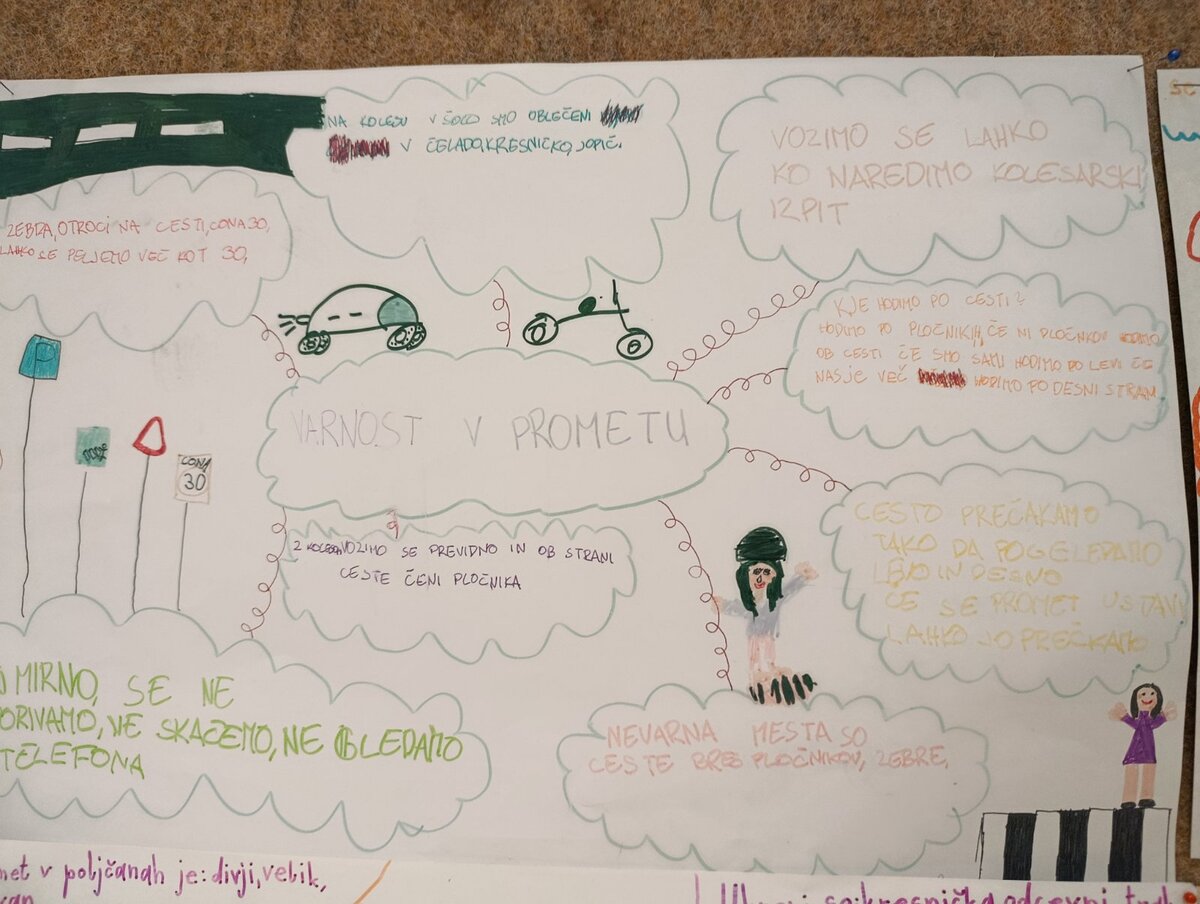 NA KOLESU V ŠOLO SMO OBLEČENI
V ČELADO, KRESNIČKO, JOPIČ.
VOZIMO SE LAHKO
KO NAREDIMO KOLESARSKI
IZPIT
ZEBRA, OTROCI NA CESTI, CONA 30,
LAHKO SE PELJEMO VEČ KOT 30,
KJE HODIMO PO CESTI?
HODIMO PO PLOČNIKIH, ČE NI PLOČNKOV HODIMO
OB CESTI ČE SMO SAMI HODIMO PO LEVI ČE
NAS JE VEČ HODIMO PO DESNI STRANI
P
CONA
30
VARNOST V PROMETU
Z KOLESOM VOZIMO SE PREVIDNO IN OB STRANI
CESTE ČE NI PLOČNIKA
CESTO PREČAKAMO
TAKO DA POGELEDAMO
LEVO IN DESNO
ČE SE PROMET USTAVI
LAHKO JO PREČKAMO
MIRNO, SE NE
PORIVAMO, NE SKAČEMO, NE GLEDAMO
TELEFONA
NEVARNA MESTA SO
CESTE BREZ PLOČNIKOV, ZEBRE,
met v poljčanah je: divji, velik,
so: kresnička, odsevni trak